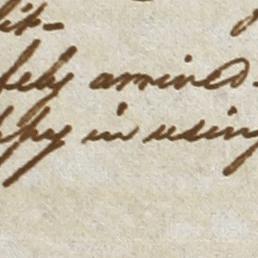 fely arrived
ppy in using